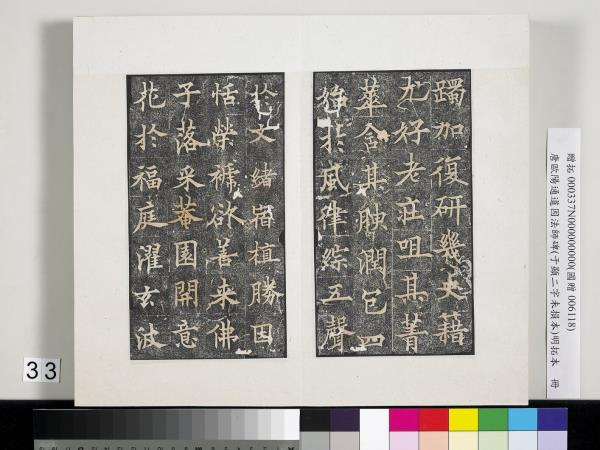 躅加復研幾史籍
尤好老莊咀其菁
華含其腴潤包四
始於風律綜五聲
於文緒宿植勝因
恬榮褫欲善來佛
子落采菴園開意
花於福庭濯玄波
贈拓 000337N000000000(國贈 006118)
唐歐陽通道因法師碑(于顯二字未損本)明拓本 冊
33